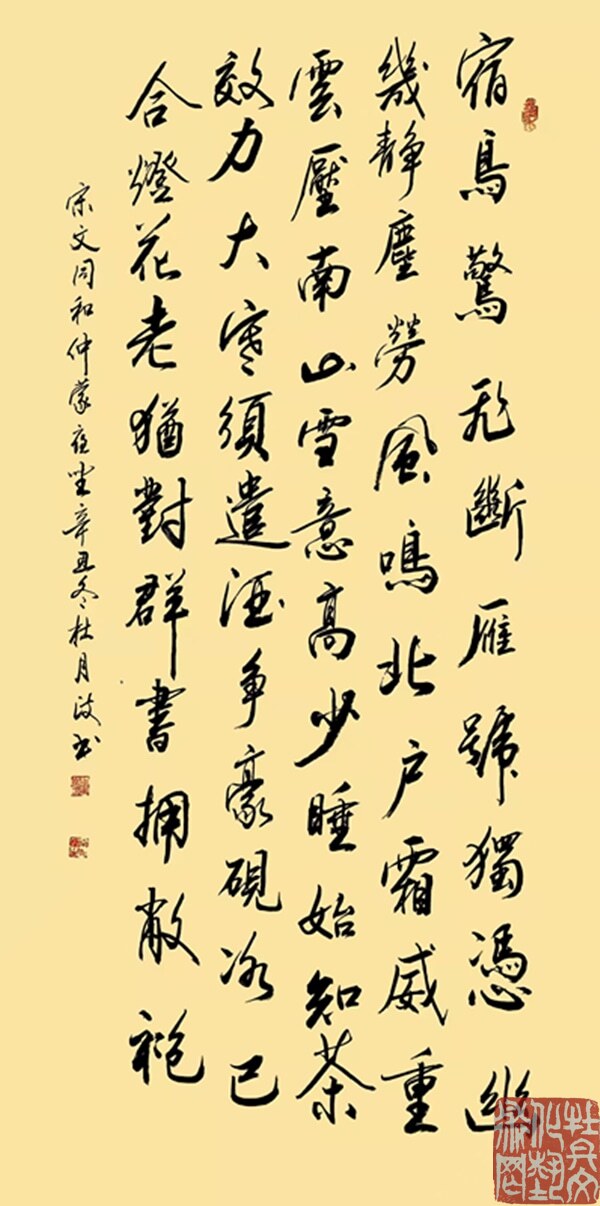 宿鳥驚飛斷雁號獨憑幽
幾静塵勞風鳴北户霜威重
雲壓南山雪意高少睡始知茶
效力大寒須遣酒争豪硯冰已
合燈花老猶對群書拥敝袍
宋文同和仲蒙夜坐辛丑冬杜月波书